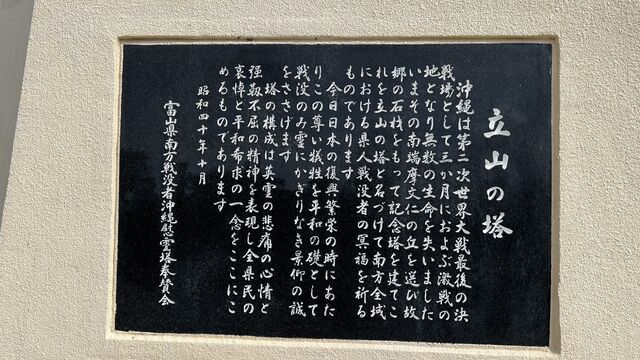 立山の塔
沖縄は第二次世界大戦最後の決
戦場として三か月におよぶ激戦の
地となり無数の生命を失いました
いまその南端摩文仁の丘を選び故
郷の石材をもって記念塔を建てこ
れを立山の塔と名づけて南方全域
における県人戦没者の冥福を祈る
ものであります
今日日本の復興繁栄の時にあた
りこの尊い犠牲を平和の礎として
戦没のみ霊にかぎりなき景仰の誠
をささげます
塔の構成は英霊の悲痛の心情と
强靱不屈の精神を表現し全県民の
哀悼と平和希求の一念をここにこ
めるものであります
昭和四十年十月
富山県南方戦没者沖縄慰霊塔奉賛会